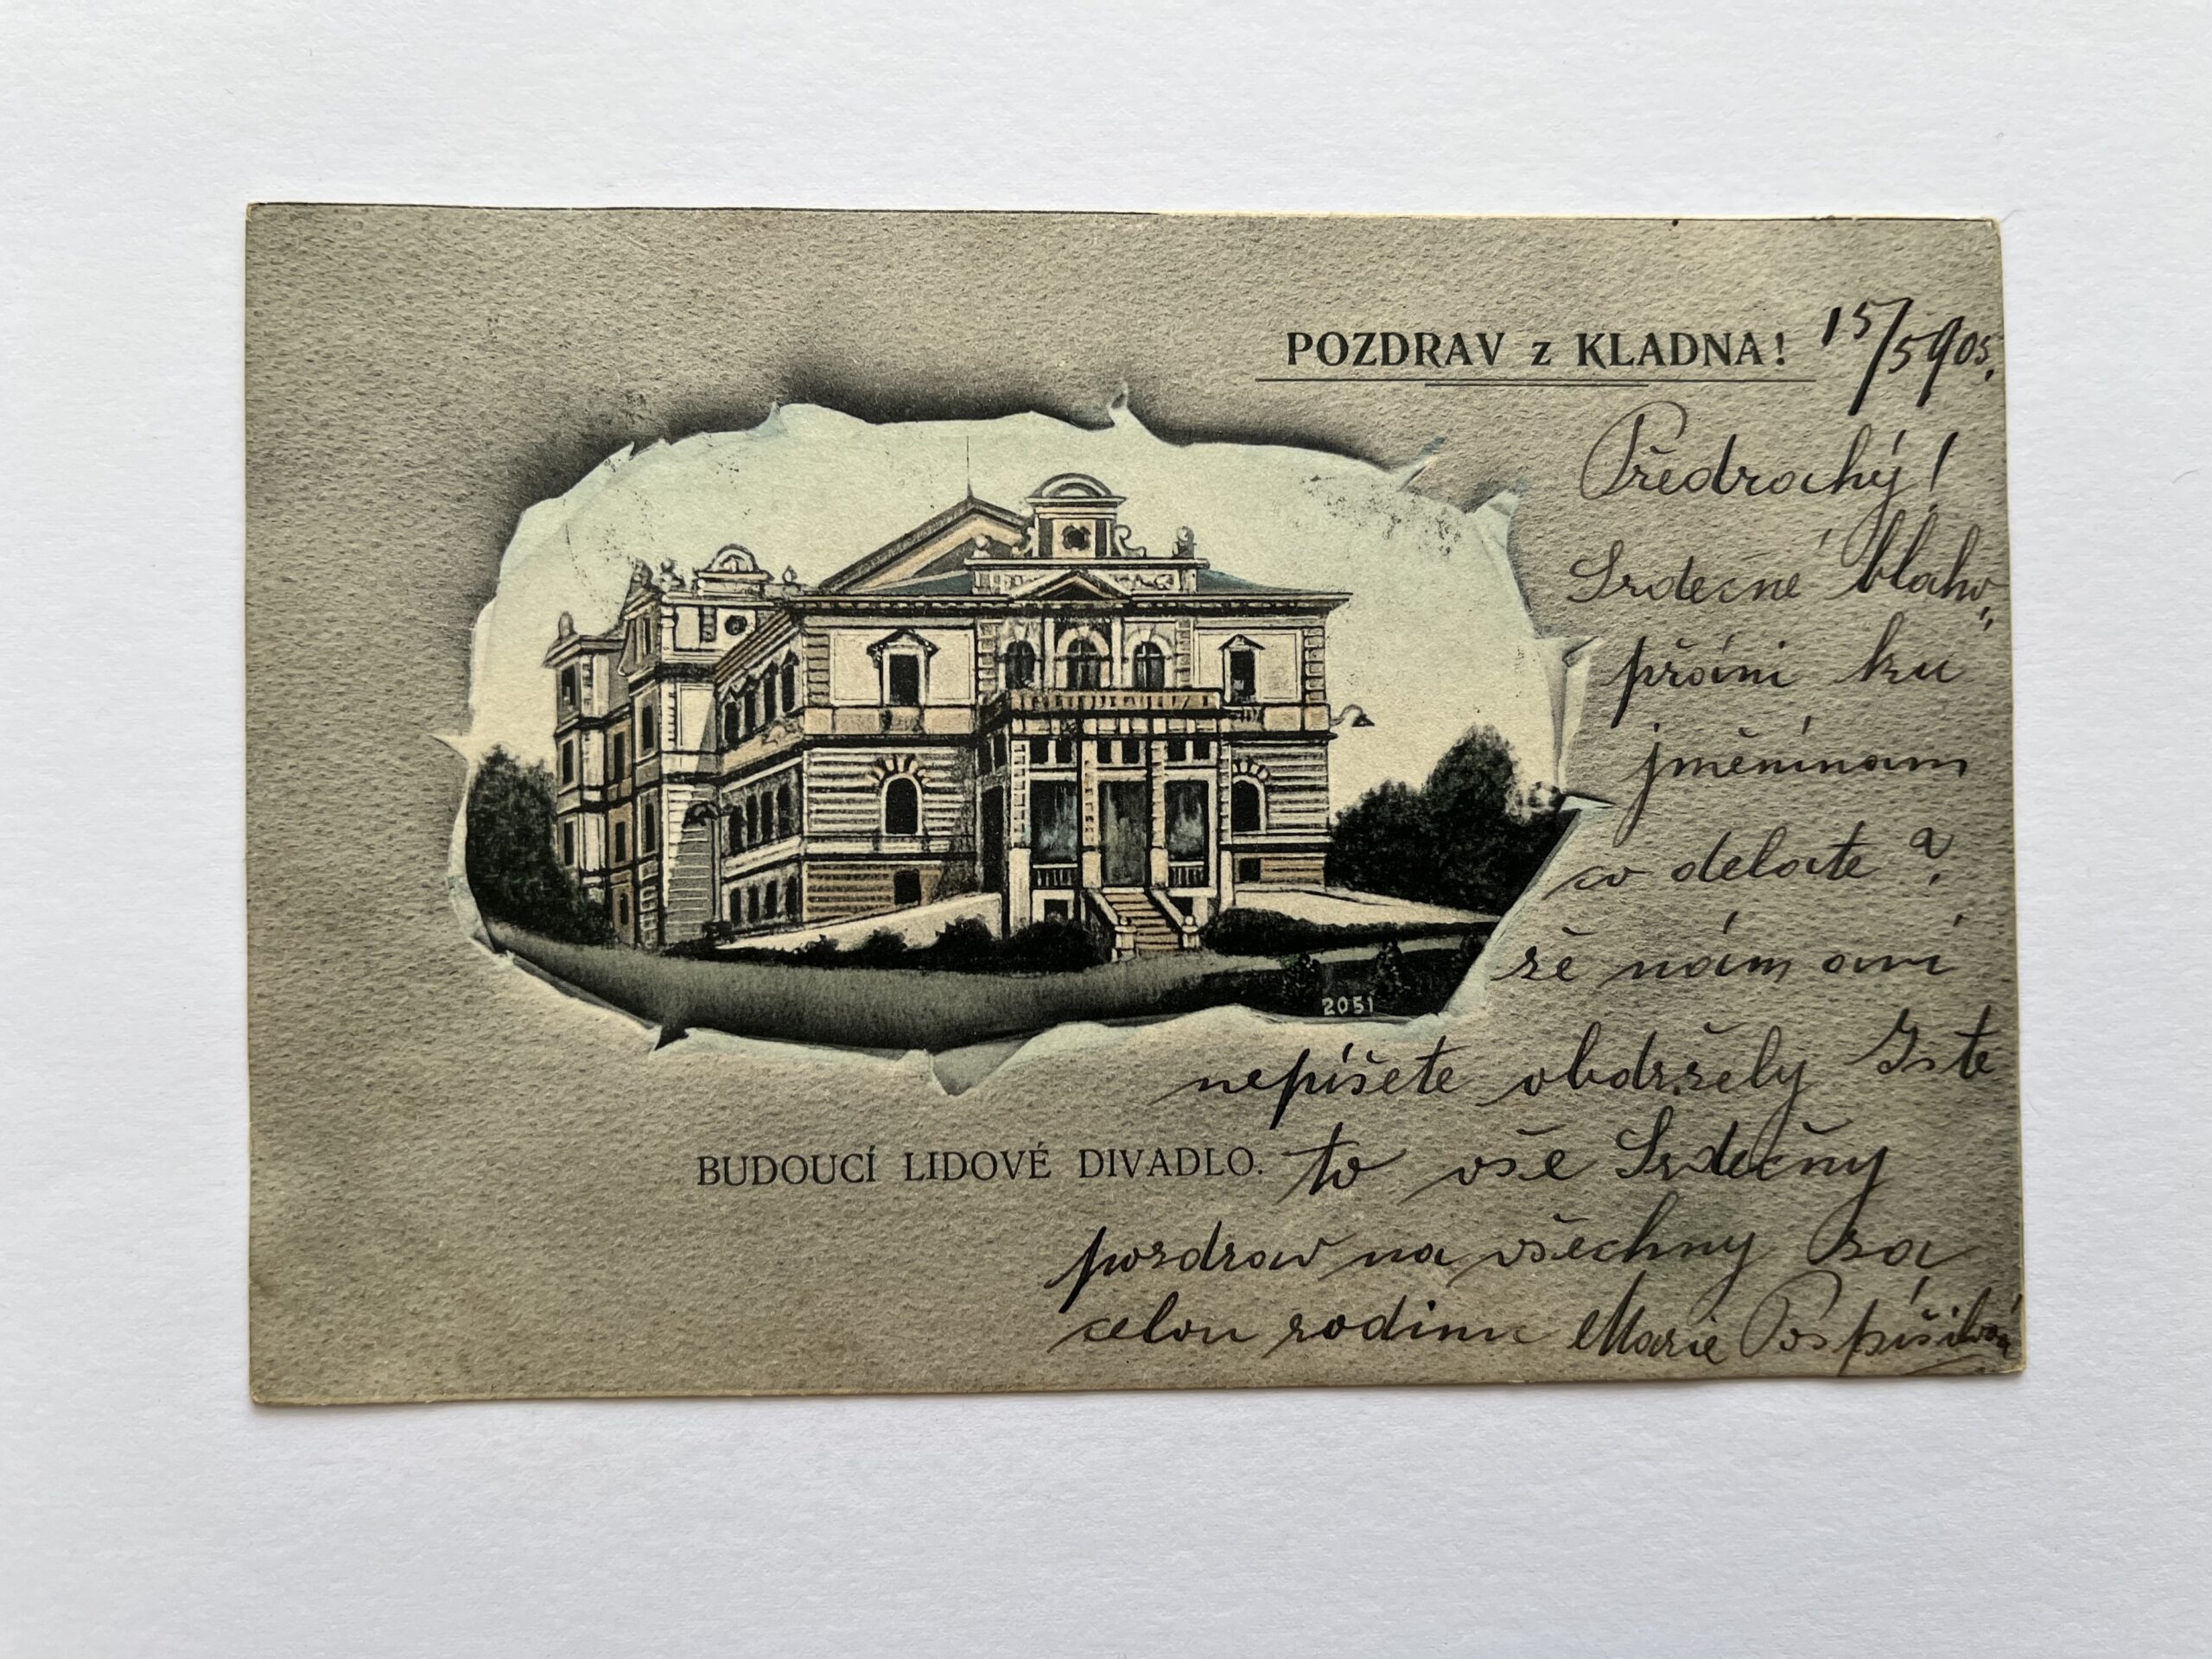 POZDRAV z KLADNA! 15/5 905.
Předrahý!
Srdečné blaho„
přáni ku
jměnínam
co delate?
že nám ani
nepíšete obdržely Jste
to vše Srdečny
pozdrav na všechny za
celou rodinu Marie Pospíšilová
2051
BUDOUCÍ LIDOVÉ DIVADLO.